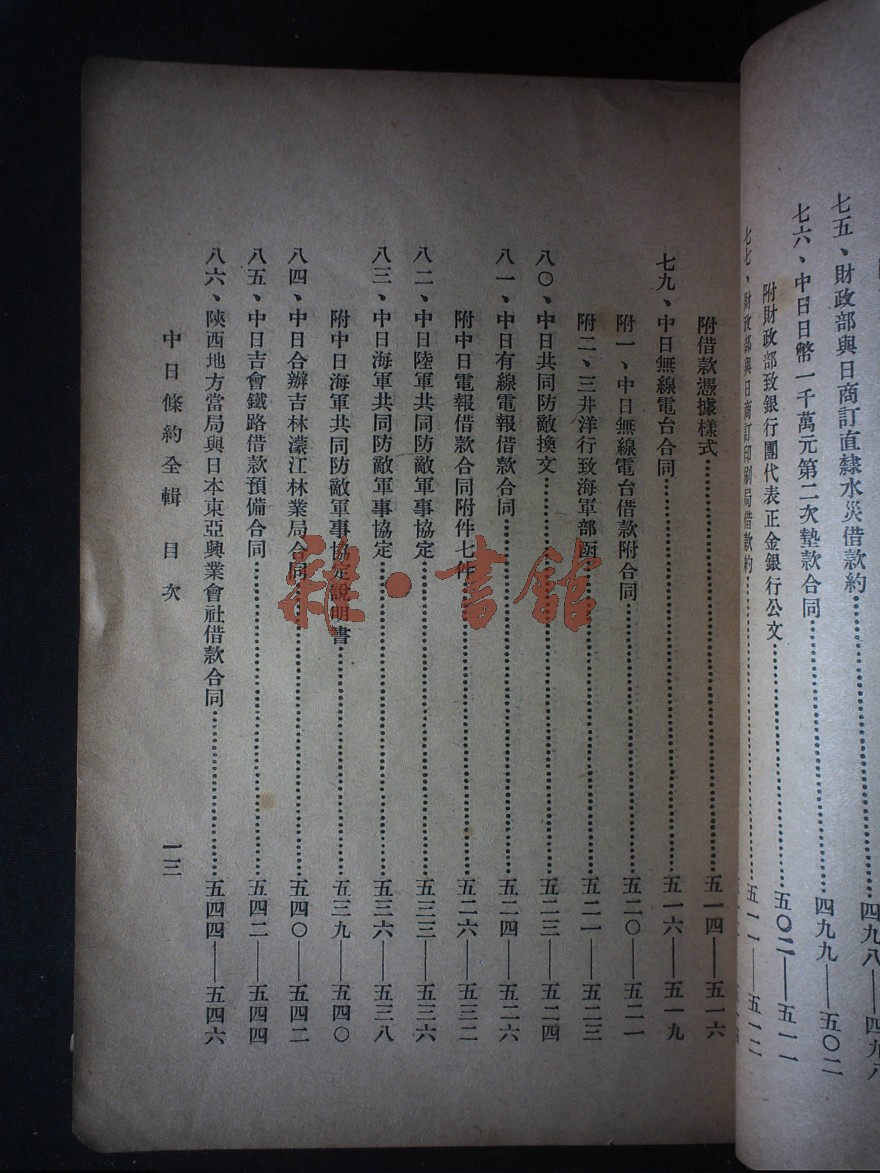 七五、財政部與日商訂直隸水災借款約……四九八——四九八
七六、中日日幣一千萬元第二次墊款合同……四九九——五〇二
附財政部致銀行團代表正金銀行公文……五〇二——五一一
七七、財政部與日商訂印刷局借款約……五一一——五一二
附借款憑據樣式……五一四——五一六
七九、中日無線電台合同……五一六——五一九
附一、中日無線電台借款附合同……五二〇——五二一
附二、三井洋行致海軍部函……五二一——五二三
八〇、中日共同防敵換文……五二三——五二四
八一、中日有線電報借款合同……五二四——五二六
附中日電報借款合同附件七件……五二六——五三二
八二、中日陸軍共同防敵軍事協定……五三三——五三六
八三、中日海軍共同防敵軍事協定……五三六——五三八
附中日海軍共同防敵軍事協定說明書……五三九——五四〇
八四、中日合辦吉林濛江林業局合同……五四〇——五四二
八五、中日吉會鐵路借款預備合同……五四二——五四四
八六、陝西地方當局與日本東亞興業會社借款合同……五四四——五四六
中日條約全輯 目次 一三
雜·書館